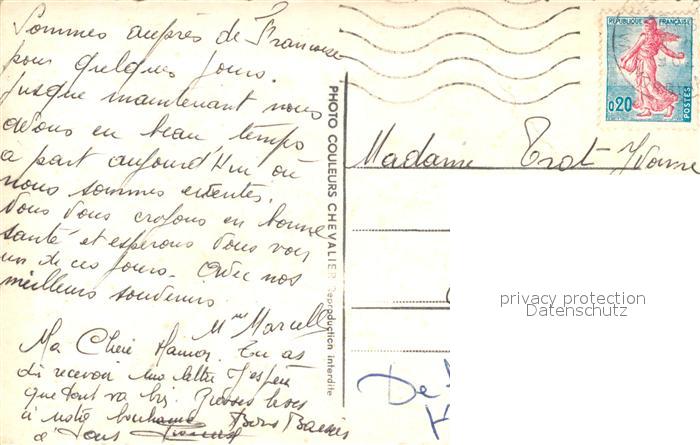 Sommes auprès de Francoise
pour quelques jours.
Jusque maintenant nous
avons eu beau temps
a part aujourd'hui où
nous sommes
Nous vous croyons en bonne
santé et espérons vous voir
un de ces jours. Avec nos
meilleurs souvenirs.
Mme Marcelle
Ma Chère Tu as
dû recevoir ma lettre J'espère
que tout va bien
à notre Bons Baisers
à vous
PHOTO COULEURS CHEVALIER Reproduction interdite
REPUBLIQUE FRANÇAISE
0,20
POSTES
Madame Trot Yvonne
privacy protection
Datenschutz
De